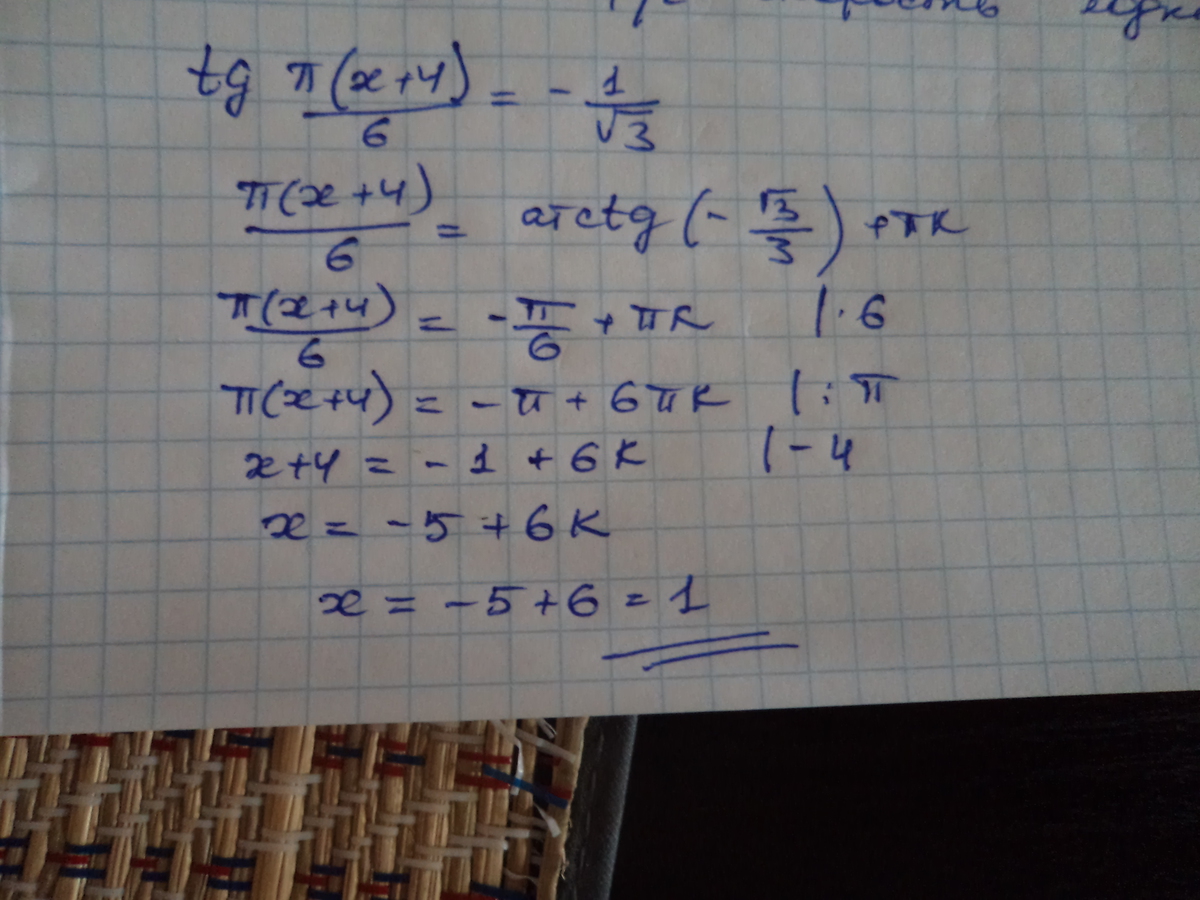 tg π(x+4)/6 = - 1/√3
π(x+4)/6 = arctg (- √3/3) + πк
π(x+4)/6 = - π/6 + πк |· 6
π(x+4) = - π + 6πк |: π
x+4 = - 1 + 6к |- 4
x = - 5 + 6к
x = - 5 + 6 = 1